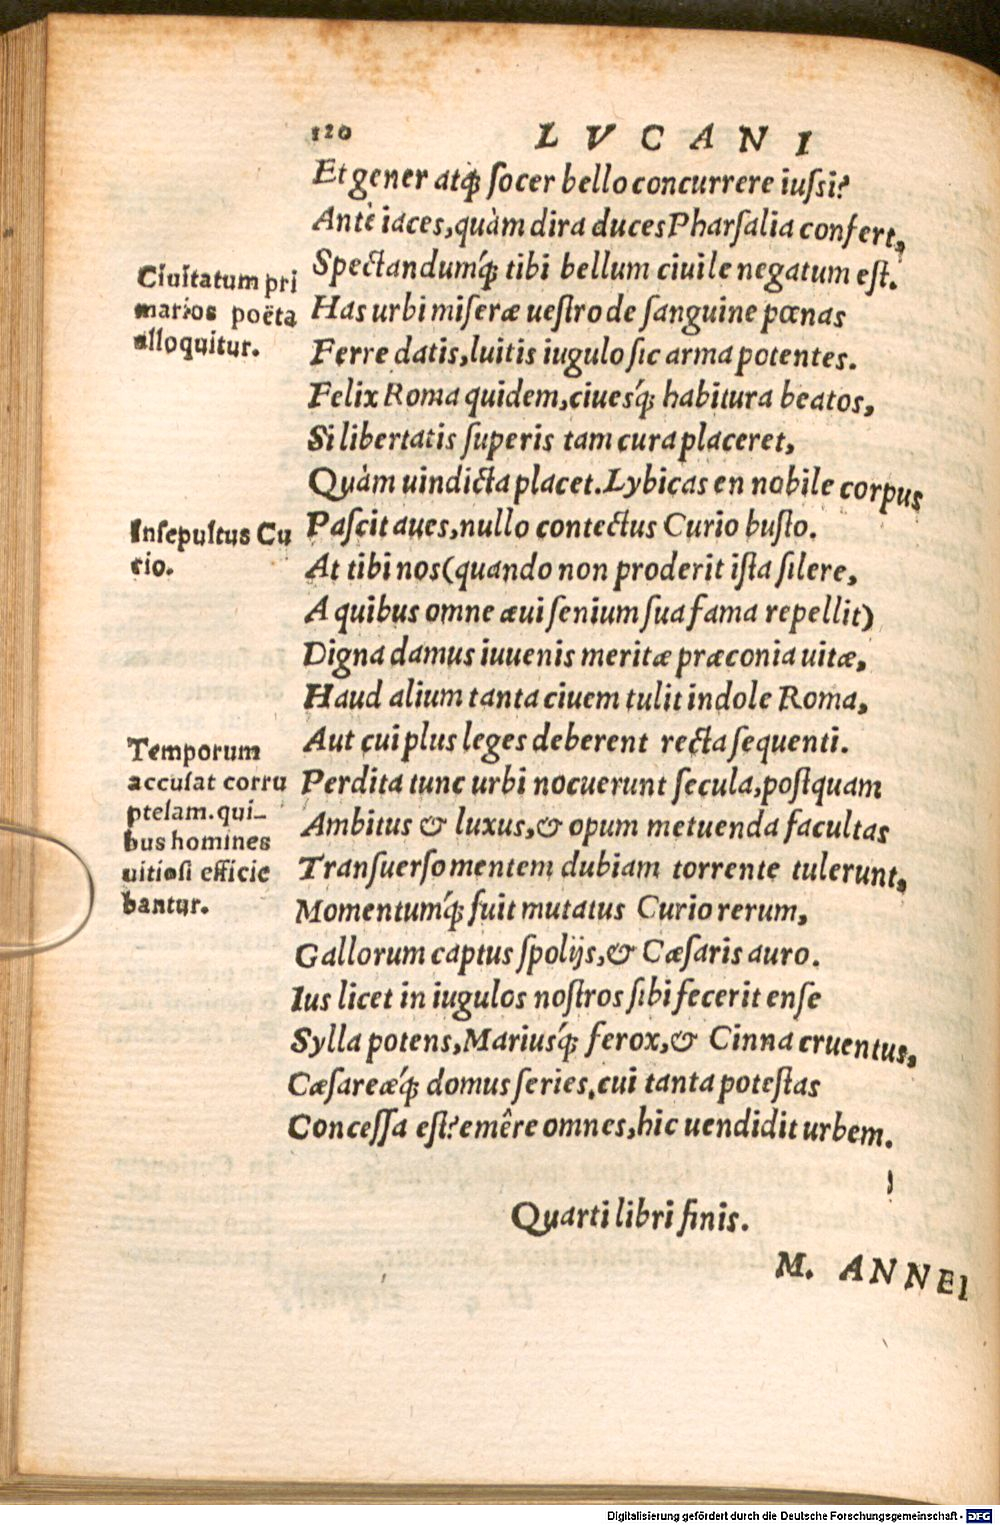 120 LVCANI
Et gener atq́; ſocer bello concurrere iuſsi?
Antè iaces, quàm dira duces Pharſalia confert,
Spectandumq́; tibi bellum ciuile negatum eſt.
Ciuitatum pri
marios poëta
alloquitur.
Has urbi miſeræ ueſtro de ſanguine pœnas
Ferre datis, luitis iugulo ſic arma potentes.
Felix Roma quidem, ciuesq́; habitura beatos,
Si libertatis ſuperis tam cura placeret,
Quàm uindicta placet. Lybicas en nobile corpus
Inſepultus Cu
rio.
Paſcit aues, nullo contectus Curio buſto.
At tibi nos (quando non proderit iſta ſilere,
A quibus omne æui ſenium ſua fama repellit)
Digna damus iuuenis meritæ præconia uitæ,
Haud alium tanta ciuem tulit indole Roma,
Aut cui plus leges deberent recta ſequenti.
Temporum
accuſat corru
ptelam. qui-
bus homines
uitioſi efficie
bantur.
Perdita tunc urbi nocuerunt ſecula, poſtquam
Ambitus & luxus, & opum metuenda facultas
Tranſuerſo mentem dubiam torrente tulerunt,
Momentumq́; fuit mutatus Curio rerum,
Gallorum captus ſpolijs, & Cæſaris auro.
Ius licet in iugulos noſtros ſibi fecerit enſe
Sylla potens, Mariusq́; ferox, & Cinna cruentus,
Cæſareæq́; domus ſeries, cui tanta poteſtas
Conceſſa eſt? emêre omnes, hic uendidit urbem.
Quarti libri finis.
M. ANNEI
Digitalisierung gefördert durch die Deutsche Forschungsgemeinschaft - DFG